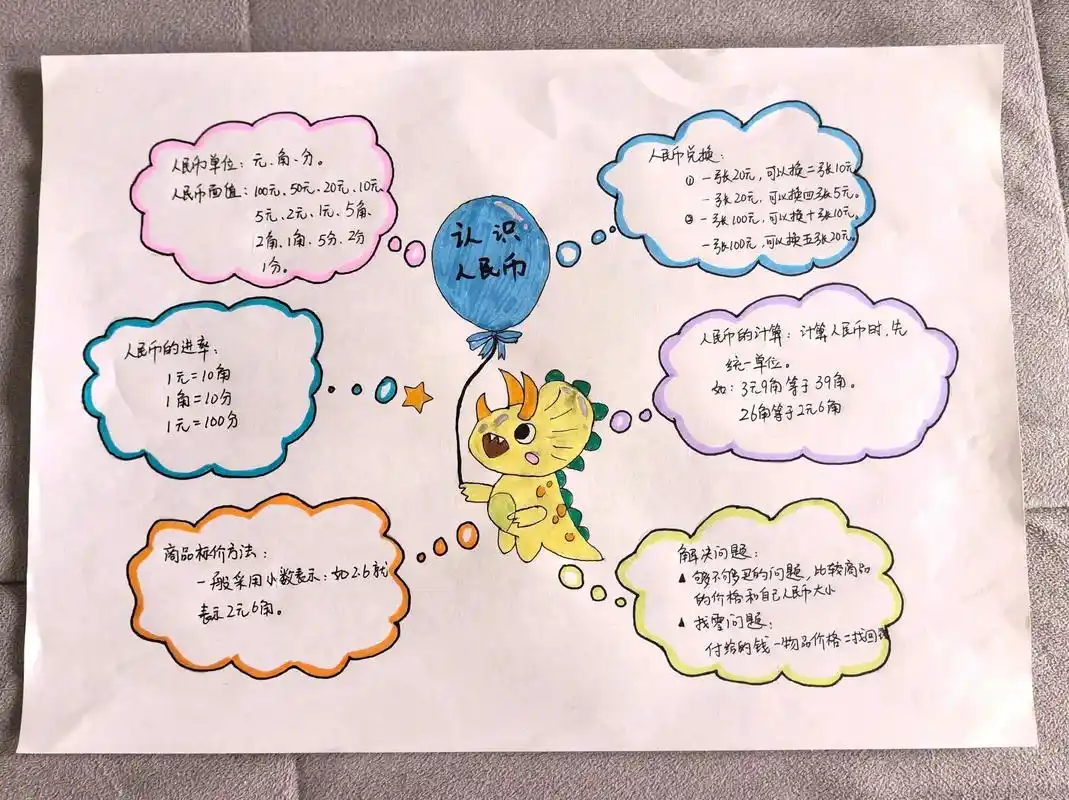 认识
人民币
人民币单位：元、角、分。
人民币面值：100元、50元、20元、10元、
5元、2元、1元、5角、
2角、1角、5分、2分
1分。
人民币兑换：
① 一张20元，可以换二张10元。
一张20元，可以换四张5元。
② 一张100元，可以换十张10元。
一张100元，可以换五张20元。
人民币的进率：
1元=10角
1角=10分
1元=100分
人民币的计算：计算人民币时，先
统一单位。
如：3元9角等于39角。
26角等于2元6角
商品标价方法：
一般采用小数表示：如2.6就
表示2元6角。
解决问题：
▲ 够不够买的问题，比较商品
的价格和自己人民币大小
▲ 找零问题：
付给的钱-物品价格=找回钱